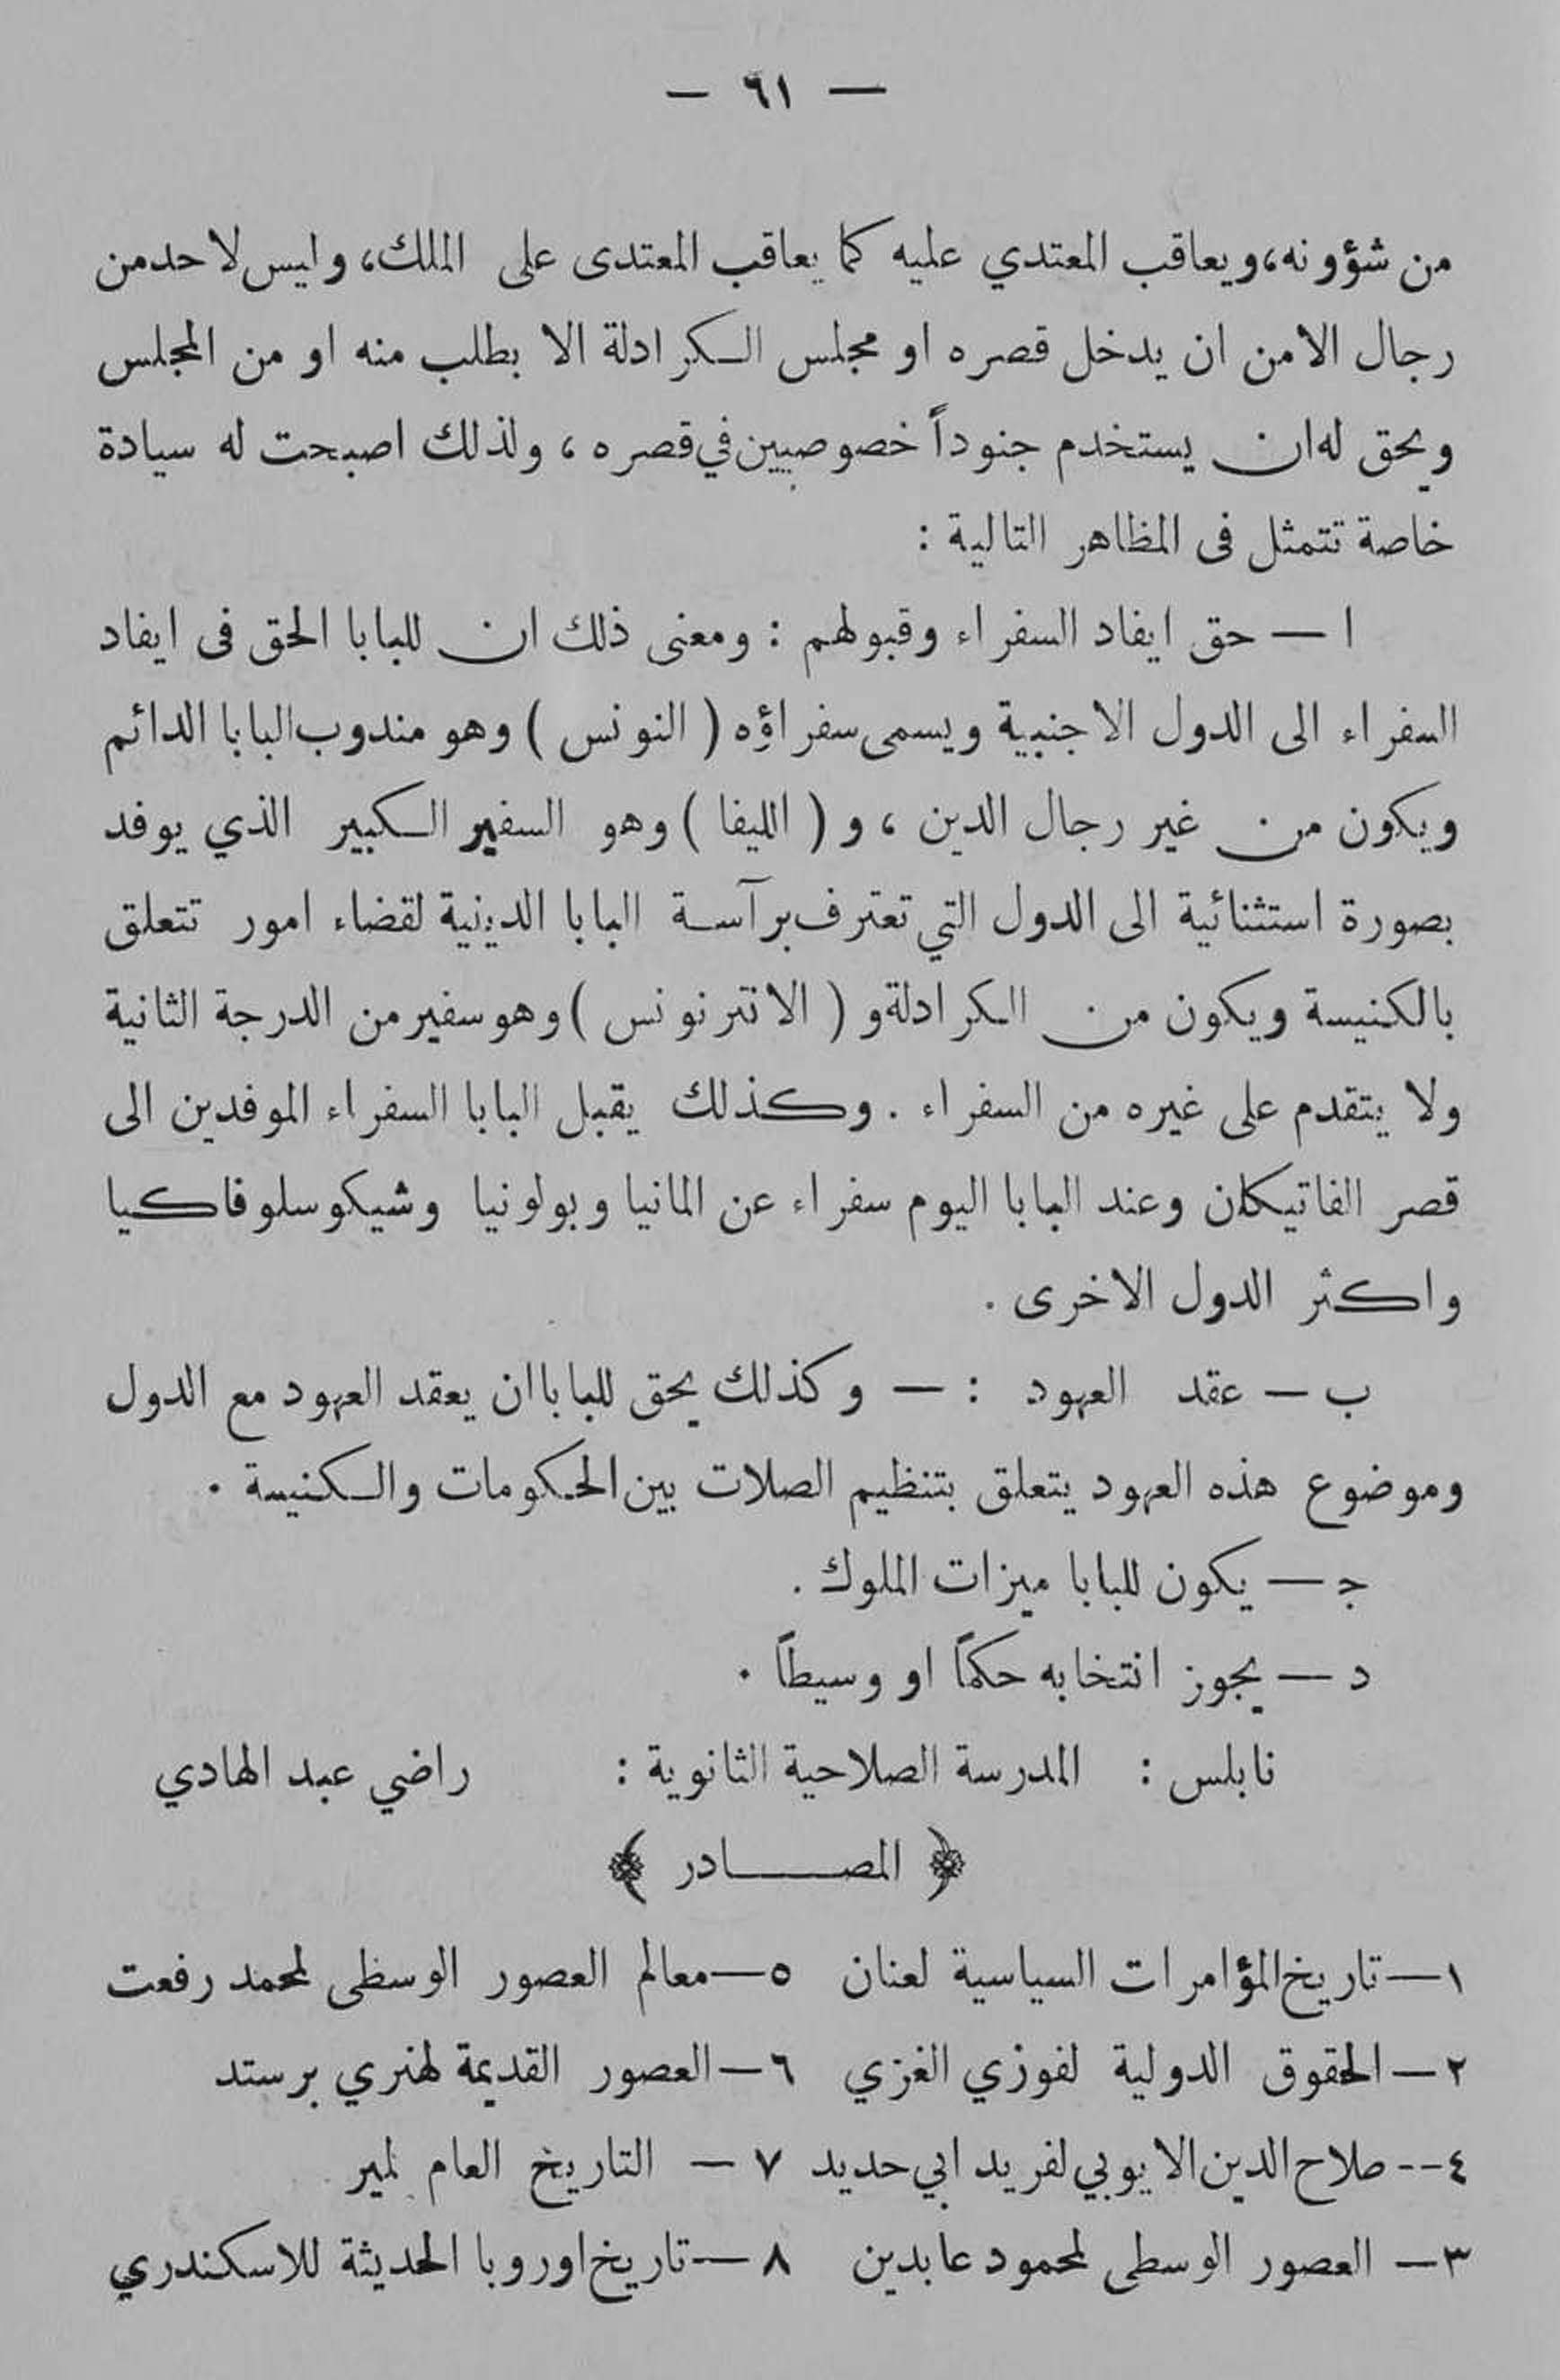 — ٦١ —
من شؤونه، ويعاقب المعتدي عليه كما يعاقب المعتدى على الملك، وليس لاحد من
رجال الامن ان يدخل قصره او مجلس الكرادلة الا بطلب منه او من المجلس
ويحق له ان يستخدم جنوداً خصوصيين في قصره ، ولذلك اصبحت له سيادة
خاصة تتمثل فى المظاهر التالية :
ا — حق ايفاد السفراء وقبولهم : ومعنى ذلك ان للبابا الحق فى ايفاد
السفراء الى الدول الاجنبية ويسمى سفراؤه ( النونس ) وهو مندوب البابا الدائم
ويكون من غير رجال الدين ، و ( الليفا ) وهو السفير الكبير الذي يوفد
بصورة استثنائية الى الدول التي تعترف برآسة البابا الدينية لقضاء امور تتعلق
بالكنيسة ويكون من الكرادلة و ( الانترنونس ) وهو سفير من الدرجة الثانية
ولا يتقدم على غيره من السفراء . وكذلك يقبل البابا السفراء الموفدين الى
قصر الفاتيكان وعند البابا اليوم سفراء عن المانيا وبولونيا وشيكوسلوفاكيا
واكثر الدول الاخرى .
ب — عقد العهود : — وكذلك يحق للبابا ان يعقد العهود مع الدول
وموضوع هذه العهود يتعلق بتنظيم الصلات بين الحكومات والكنيسة .
جـ — يكون للبابا ميزات الملوك .
د — يجوز انتخابه حكماً او وسيطاً .
نابلس : المدرسة الصلاحية الثانوية : راضي عبد الهادي
﴿ المصــادر ﴾
١— تاريخ المؤامرات السياسية لعنان ٥— معالم العصور الوسظى لمحمد رفعت
٢— الحقوق الدولية لفوزي الغزي ٦— العصور القديمة لهنري برستد
٤-- صلاح الدين الايوبي لفريد ابي حديد ٧ — التاريخ العام لمير
٣— العصور الوسطى لمحمود عابدين ٨— تاريخ اوروبا الحديثة للاسكندري